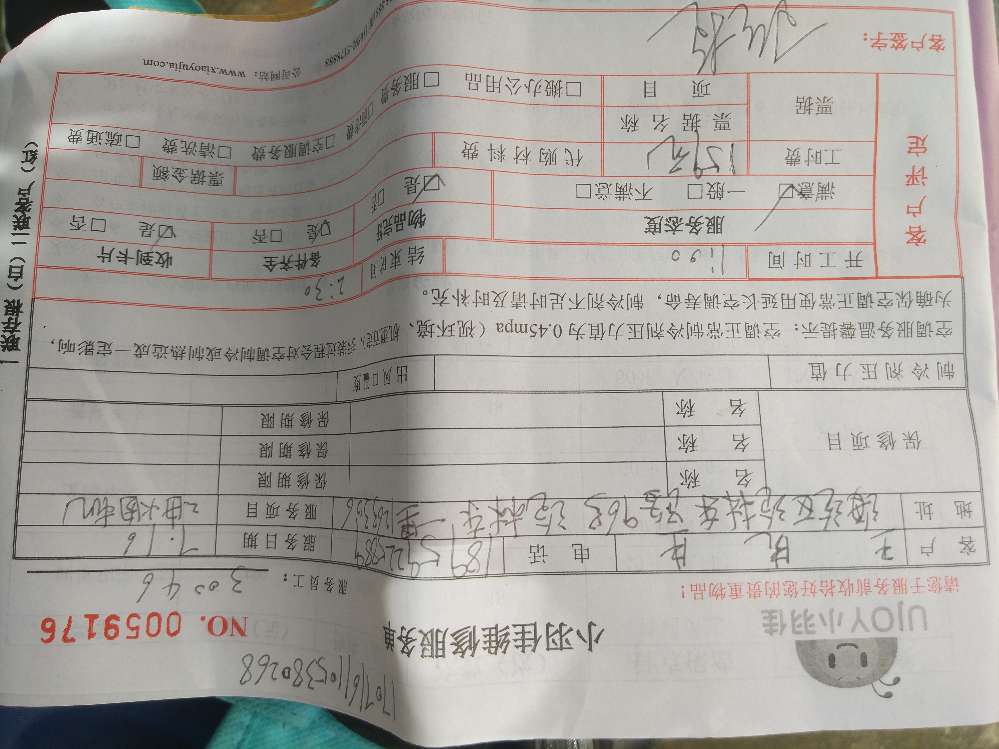 1707161105380268
UJOY小羽佳
小羽佳维修服务单
NO. 0059176
请您于服务前收拾好您的贵重物品!
服务员工: 30046
客户 王 先 生 电话 189 服务日期 7.16
地址 服务项目
保修项目 名称 保修期限
名称 保修期限
名称 保修期限
制冷剂压力值 出风口温度
空调服务温馨提示: 空调正常制冷剂压力值为0.45mpa (视环境、机型定, 安装过程会对空调制冷或制热造成一定影响,
为确保空调正常使用延长空调寿命, 制冷剂不足时请及时补充。
客户评定
开工时间 1:30 结束时间 2:30 收到卡片 是 否
服务态度 物品完好 备件齐全 是 否
满意 一般 不满意 是 否
工时费 159元 代购材料费 票据金额
票据 票据名称 空调服务费 清洗费 疏通费
项目 搬办公用品 服务费
客户签字:
公司网站: www.xiaoyujia.com
一联存根(白)二联客户(红)